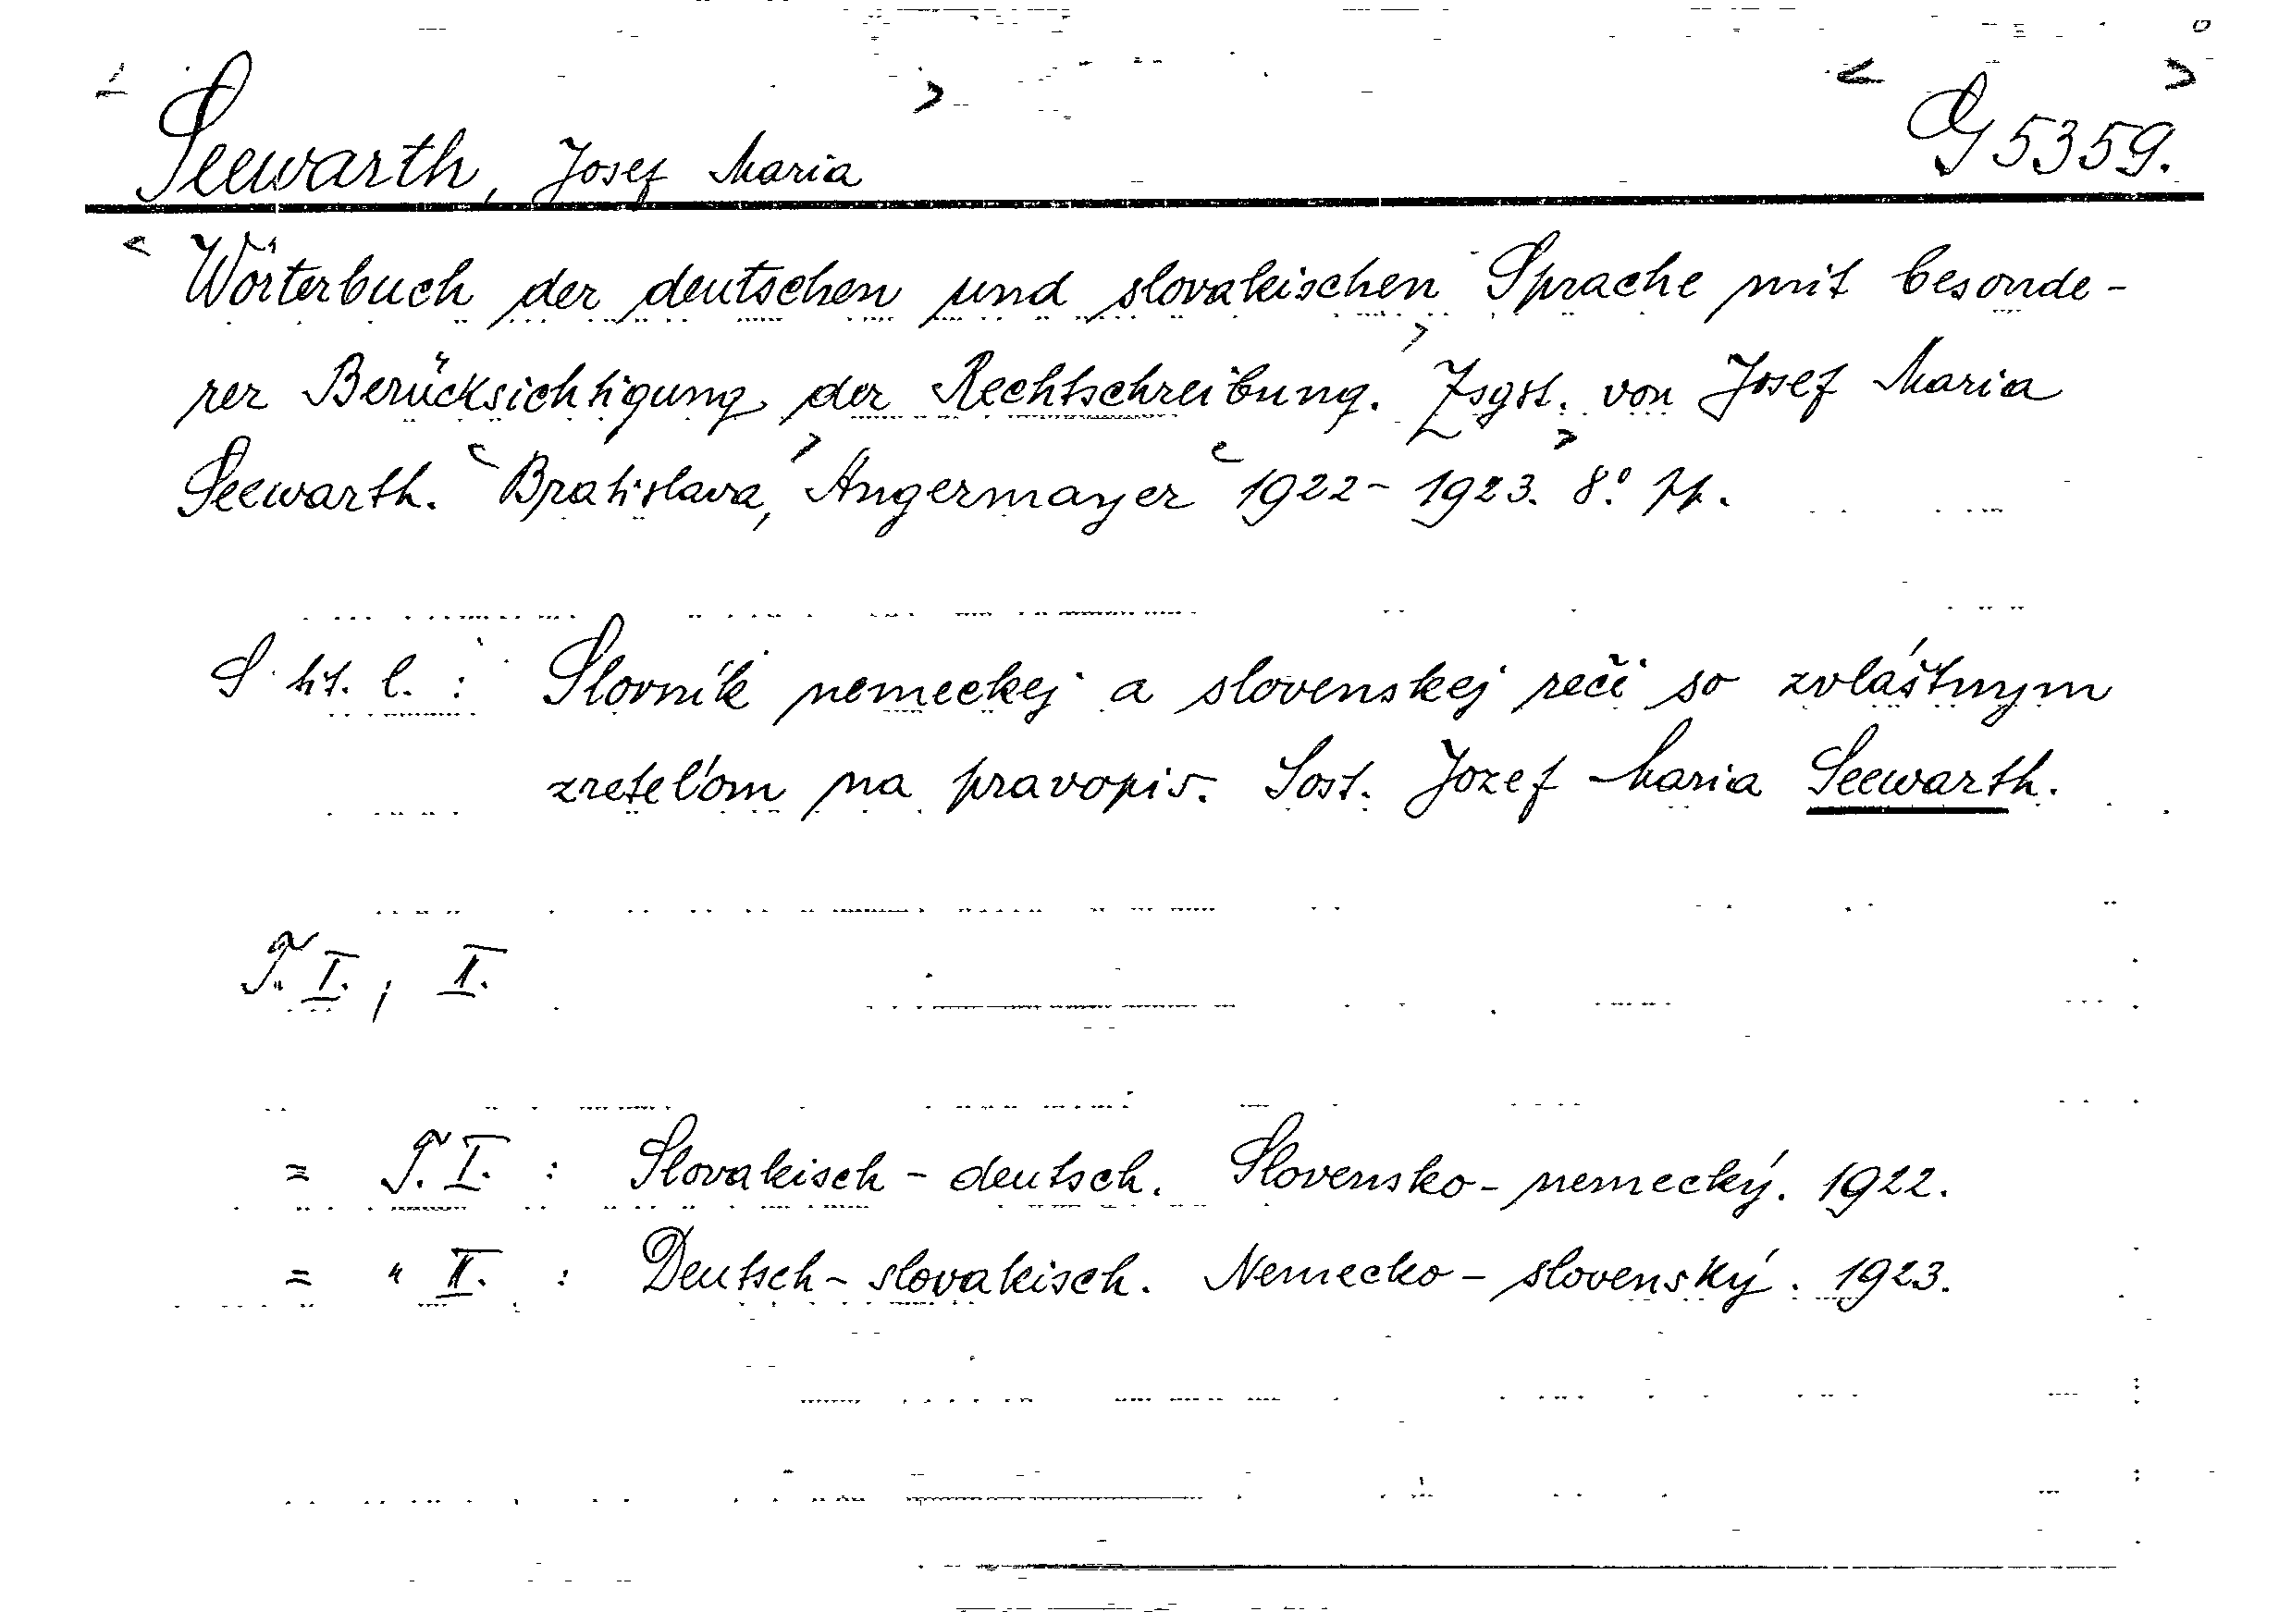 Seewarth, Josef Maria G 5359.
Wörterbuch der deutschen und slovakischen Sprache mit besonde-
rer Berücksichtigung der Rechtschreibung. Zsgst. von Josef Maria
Seewarth. Bratislava, Angermayer 1922-1923. 8°.
S. tit. l.: Slovník nemeckej a slovenskej reči so zvláštnym
zreteľom na pravopis. Sost. Jozef Maria Seewarth.
T. I., II.
= T. I. : Slovakisch-deutsch. Slovensko-nemecký. 1922.
= " II. : Deutsch-slovakisch. Nemecko-slovenský. 1923.